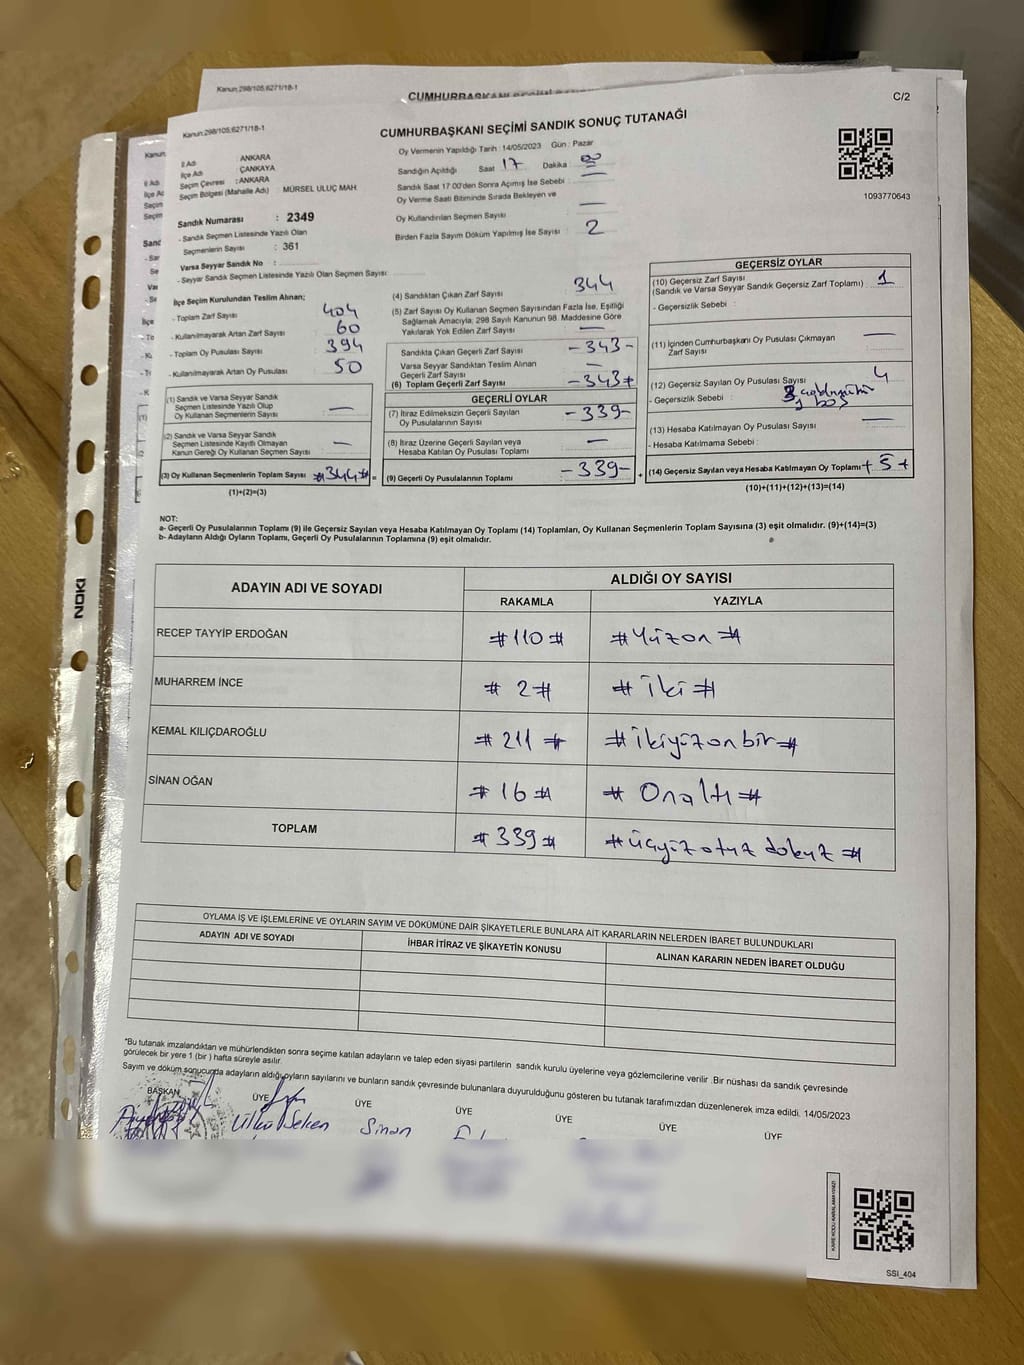 Kanun:298/105,6271/18-1
CUMHURBAŞKANI SEÇİMİ
C/2
Kanun:298/105,6271/18-1
CUMHURBAŞKANI SEÇİMİ SANDIK SONUÇ TUTANAĞI
Oy Vermenin Yapıldığı Tarih : 14/05/2023 Gün : Pazar
İl Adı : ANKARA
İlçe Adı : ÇANKAYA
Seçim Çevresi : ANKARA
Seçim Bölgesi (Mahalle Adı) MÜRSEL ULUÇ MAH
Sandığın Açıldığı Saat 17 Dakika 00
Sandık Saat 17:00'den Sonra Açımış İse Sebebi :
Oy Verme Saati Bitiminde Sırada Bekleyen ve
Oy Kullandırılan Seçmen Sayısı —
Birden Fazla Sayım Döküm Yapılmış İse Sayısı 2
1093770643
Sandık Numarası : 2349
- Sandık Seçmen Listesinde Yazılı Olan
Seçmenlerin Sayısı : 361
Varsa Seyyar Sandık No :
- Seyyar Sandık Seçmen Listesinde Yazılı Olan Seçmen Sayısı:
İlçe Seçim Kurulundan Teslim Alınan;
- Toplam Zarf Sayısı : 404
- Kullanılmayarak Artan Zarf Sayısı : 60
- Toplam Oy Pusulası Sayısı : 394
- Kullanılmayarak Artan Oy Pusulası : 50
(1) Sandık ve Varsa Seyyar Sandık
Seçmen Listesinde Yazılı Olup
Oy Kullanan Seçmenlerin Sayısı —
(2) Sandık ve Varsa Seyyar Sandık
Seçmen Listesinde Kayıtlı Olmayan
Kanun Gereği Oy Kullanan Seçmenlerin Sayısı —
(3) Oy Kullanan Seçmenlerin Toplam Sayısı #344# =
(1)+(2)=(3)
(4) Sandıktan Çıkan Zarf Sayısı 344
(5) Zarf Sayısı Oy Kullanan Seçmen Sayısından Fazla İse, Eşitliği
Sağlamak Amacıyla; 298 Sayılı Kanunun 98. Maddesine Göre
Yakılarak Yok Edilen Zarf Sayısı —
Sandıkta Çıkan Geçerli Zarf Sayısı -343-
Varsa Seyyar Sandıktan Teslim Alınan
Geçerli Zarf Sayısı —
(6) Toplam Geçerli Zarf Sayısı -343+
GEÇERLİ OYLAR
(7) İtiraz Edilmeksizin Geçerli Sayılan
Oy Pusulalarının Sayısı -339-
(8) İtiraz Üzerine Geçerli Sayılan veya
Hesaba Katılan Oy Pusulası Toplamı —
(9) Geçerli Oy Pusulalarının Toplamı -339- +
GEÇERSİZ OYLAR
(10) Geçersiz Zarf Sayısı
(Sandık ve Varsa Seyyar Sandık Geçersiz Zarf Toplamı) 1
- Geçersizlik Sebebi :
(11) İçinden Cumhurbaşkanı Oy Pusulası Çıkmayan
Zarf Sayısı —
(12) Geçersiz Sayılan Oy Pusulası Sayısı 4
- Geçersizlik Sebebi : 3
1 boş
(13) Hesaba Katılmayan Oy Pusulası Sayısı —
- Hesaba Katılmama Sebebi :
(14) Geçersiz Sayılan veya Hesaba Katılmayan Oy Toplamı + 5 +
(10)+(11)+(12)+(13)=(14)
NOT:
a- Geçerli Oy Pusulalarının Toplamı (9) ile Geçersiz Sayılan veya Hesaba Katılmayan Oy Toplamı (14) Toplamları, Oy Kullanan Seçmenlerin Toplam Sayısına (3) eşit olmalıdır. (9)+(14)=(3)
b- Adayların Aldığı Oyların Toplamı, Geçerli Oy Pusulalarının Toplamına (9) eşit olmalıdır.
ADAYIN ADI VE SOYADI
ALDIĞI OY SAYISI
RAKAMLA YAZIYLA
RECEP TAYYİP ERDOĞAN #110# #Yüzon#
MUHARREM İNCE # 2# # İki #
KEMAL KILIÇDAROĞLU #211# #ikiyüzonbir#
SİNAN OĞAN #16# # Onaltı #
TOPLAM #339# #üçyüzotuzdokuz#
OYLAMA İŞ VE İŞLEMLERİNE VE OYLARIN SAYIM VE DÖKÜMÜNE DAİR ŞİKAYETLERLE BUNLARA AİT KARARLARIN NELERDEN İBARET BULUNDUKLARI
ADAYIN ADI VE SOYADI İHBAR İTİRAZ VE ŞİKAYETİN KONUSU ALINAN KARARIN NEDEN İBARET OLDUĞU
*Bu tutanak imzalandıktan ve mühürlendikten sonra seçime katılan adayların ve talep eden siyasi partilerin sandık kurulu üyelerine veya gözlemcilerine verilir .Bir nüshası da sandık çevresinde
görülecek bir yere 1 (bir ) hafta süreyle asılır.
Sayım ve döküm sonucunda adayların aldığı oyların sayılarını ve bunların sandık çevresinde bulunanlara duyurulduğunu gösteren bu tutanak tarafımızdan düzenlenerek imza edildi. 14/05/2023
BAŞKAN ÜYE ÜYE ÜYE ÜYE ÜYE ÜYE
Ülkü Selcen Sinan
NOKI
SSI_404